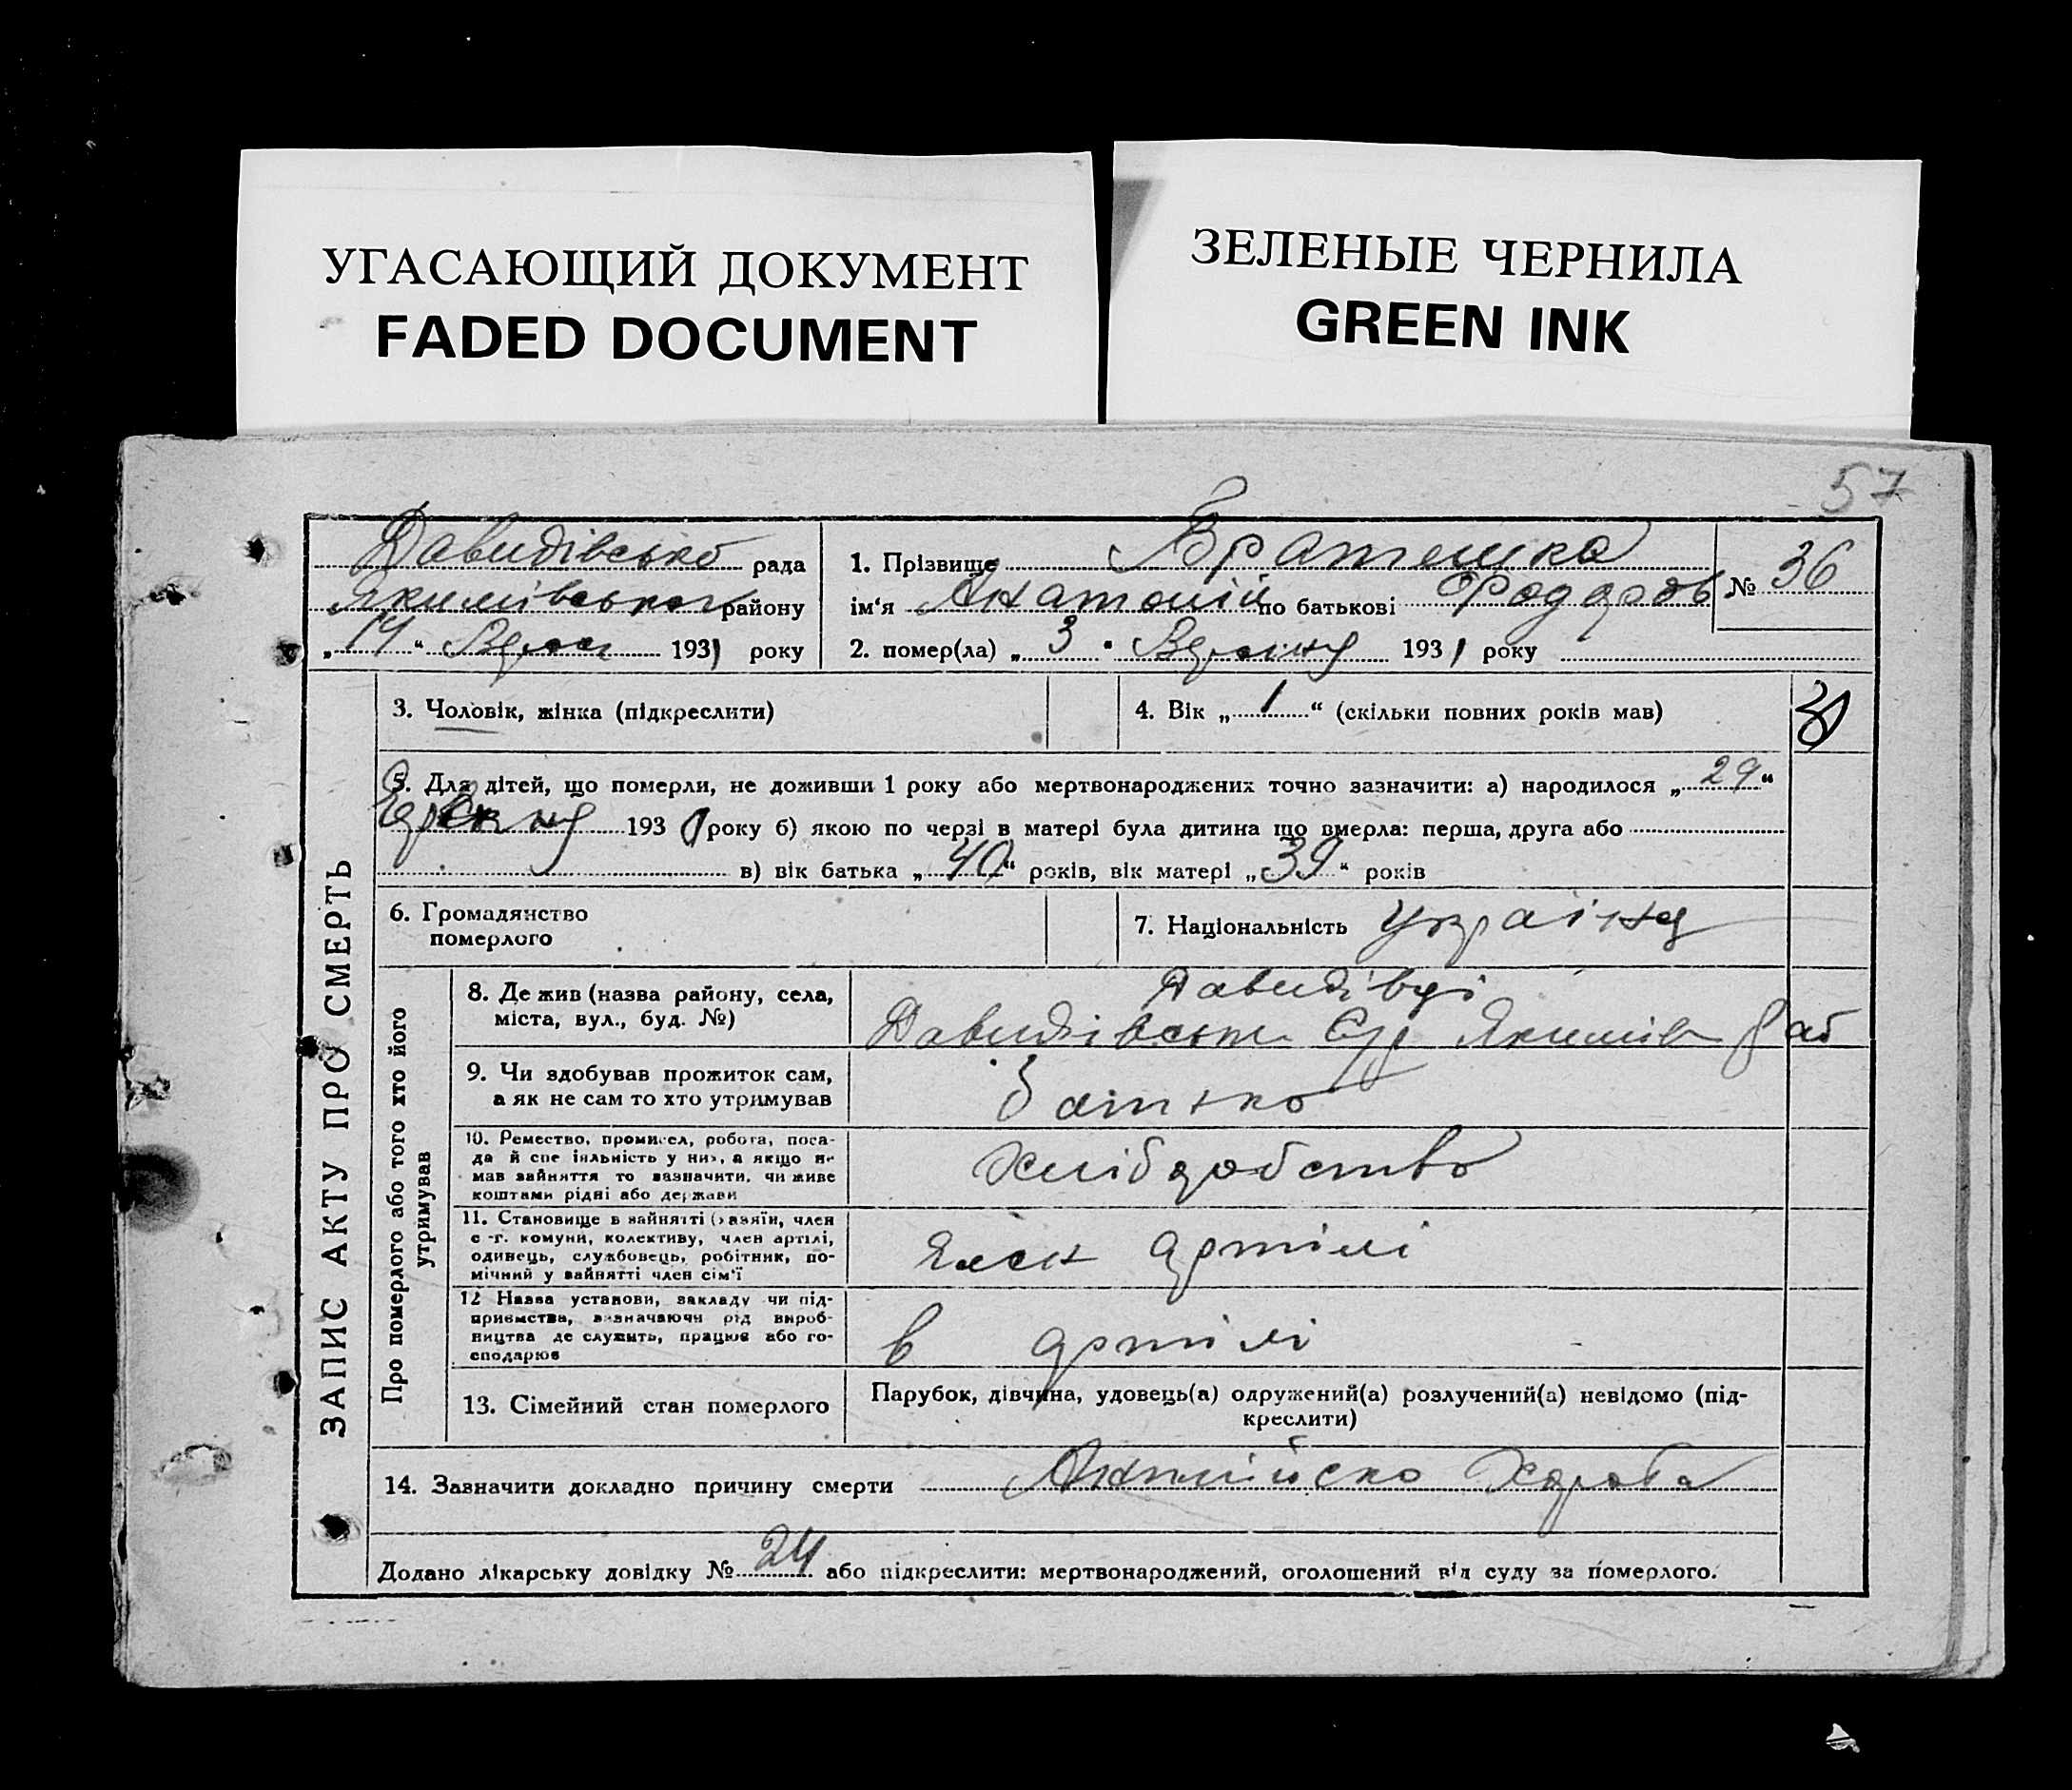 УГАСАЮЩИЙ ДОКУМЕНТ
FADED DOCUMENT
ЗЕЛЕНЫЕ ЧЕРНИЛА
GREEN INK
57
Давидівсько рада
Якимівського району
193 року
1. Прізвище Братешка
ім'я Анатолій по батькові Фодоров
№ 36
2. помер(ла) „ 3 " 1931 року
ЗАПИС АКТУ ПРО СМЕРТЬ
3. Чоловік, жінка (підкреслити)
4. Вік „ 1 “ (скільки повних років мав)
5. Для дітей, що померли, не доживши 1 року або мертвонароджених точно зазначити: а) народилося „ 29 “
193 року б) якою по черзі в матері була дитина що вмерла: перша, друга або
в) вік батька „ 40 “ років, вік матері „ 39 “ років
6. Громадянство
померлого
7. Національність
Про померлого або того хто його
утримував
8. Де жив (назва району, села,
міста, вул., буд. №)
Давидівці
Якимів
9. Чи здобував прожиток сам,
а як не сам то хто утримував
батько
10. Ремество, промисел, робота, поса-
да й спеціяльність у них, а якщо не
мав зайняття то зазначити, чи живе
коштами рідні або держави
Хлібробство
11. Становище в зайнятті (хазяїн, член
с.-г. комуни, колективу, член артілі,
одинець, службовець, робітник, по-
мічний у зайнятті член сім'ї
член артілі
12 Назва установи, закладу чи під-
приємства, зазначаючи рід вироб-
ництва де служить, працює або го-
сподарює
в артілі
13. Сімейний стан померлого
Парубок, дівчина, удовець(а) одружений(а) розлучений(а) невідомо (під-
креслити)
14. Зазначити докладно причину смерти
Англійско Хороба
Додано лікарську довідку № 24 або підкреслити: мертвонароджений, оголошений від суду за померлого.